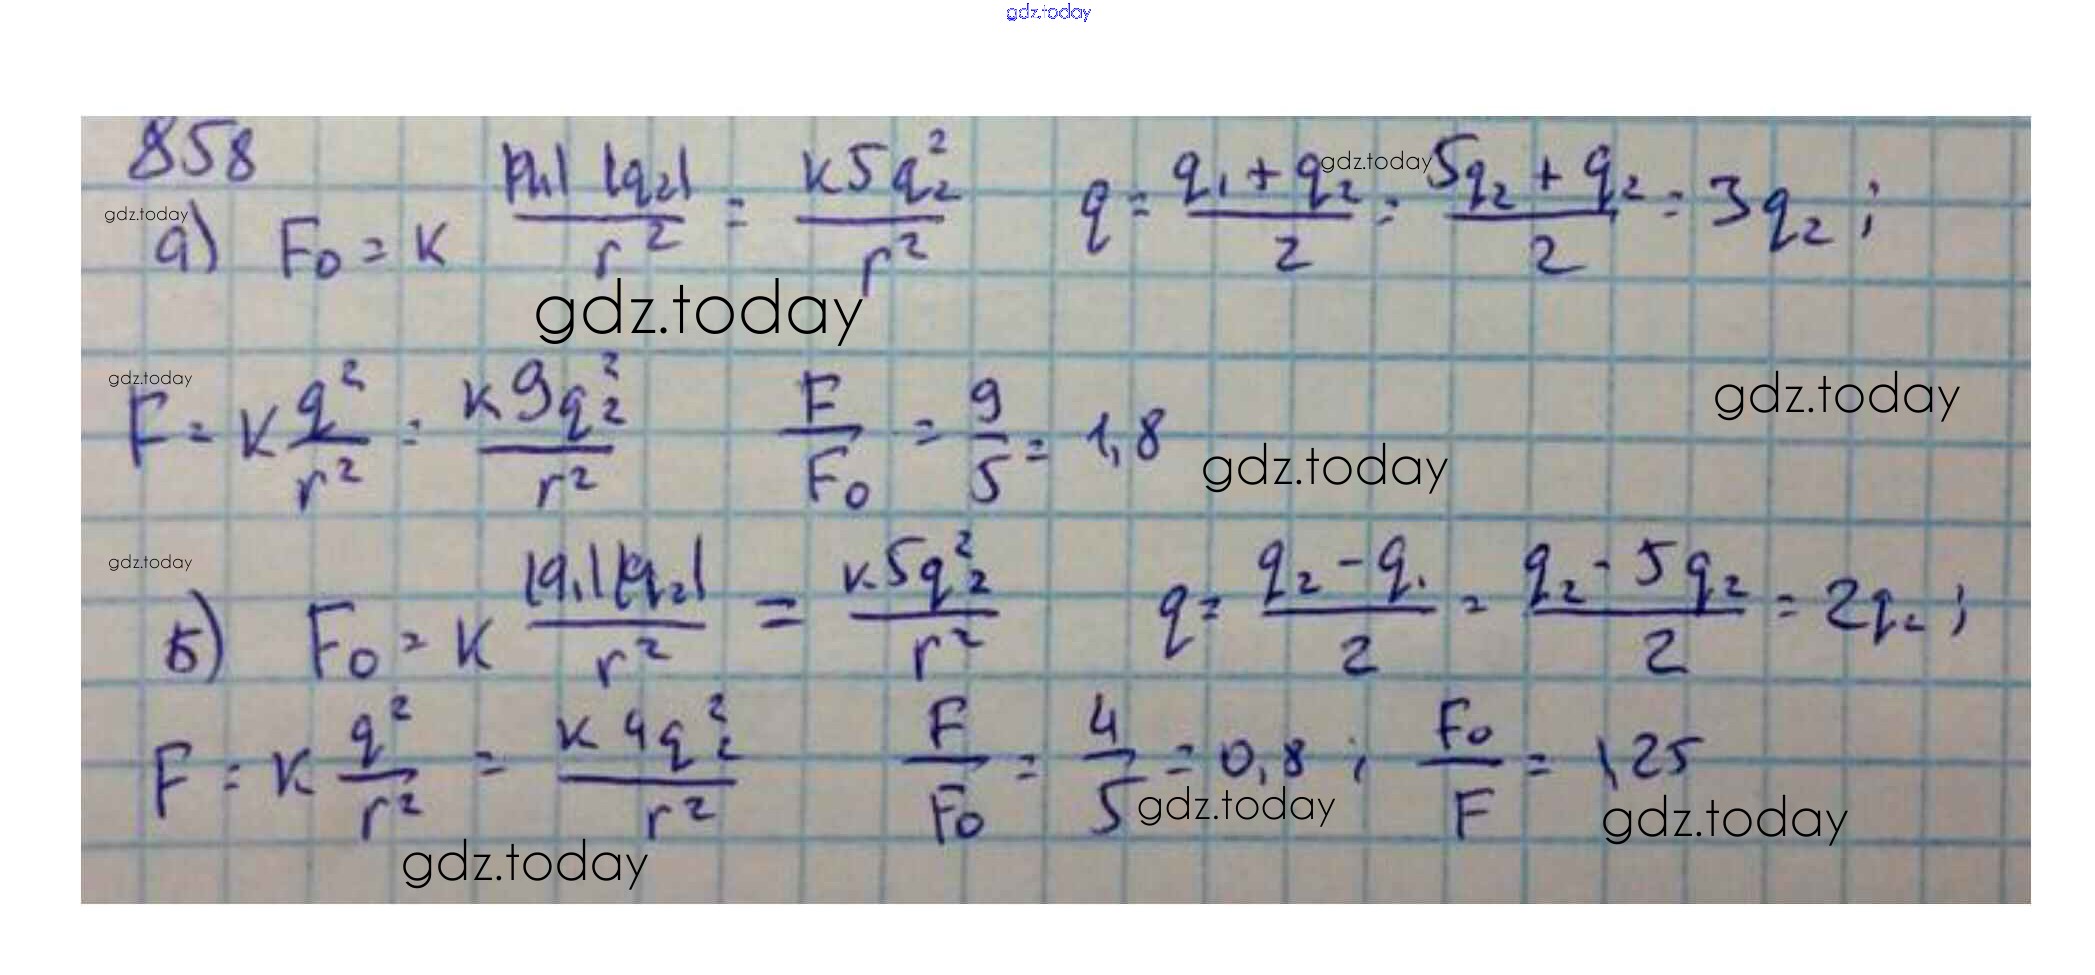 gdz.today
858
gdz.today
а) F₀ = к |q₁| |q₂| / r² = к5q₂² / r² q = (q₁ + q₂) / 2 = (5q₂ + q₂) / 2 = 3q₂ ;
gdz.today
gdz.today
gdz.today
F = к q² / r² = к9q₂² / r² F / F₀ = 9 / 5 = 1,8
gdz.today
gdz.today
gdz.today
б) F₀ = к |q₁||q₂| / r² = к5q₂² / r² q = (q₂ - q₁) / 2 = (q₂ - 5q₂) / 2 = 2q₂ ;
F = к q² / r² = к4q₂² / r² F / F₀ = 4 / 5 = 0,8 ; F₀ / F = 1,25
gdz.today
gdz.today
gdz.today